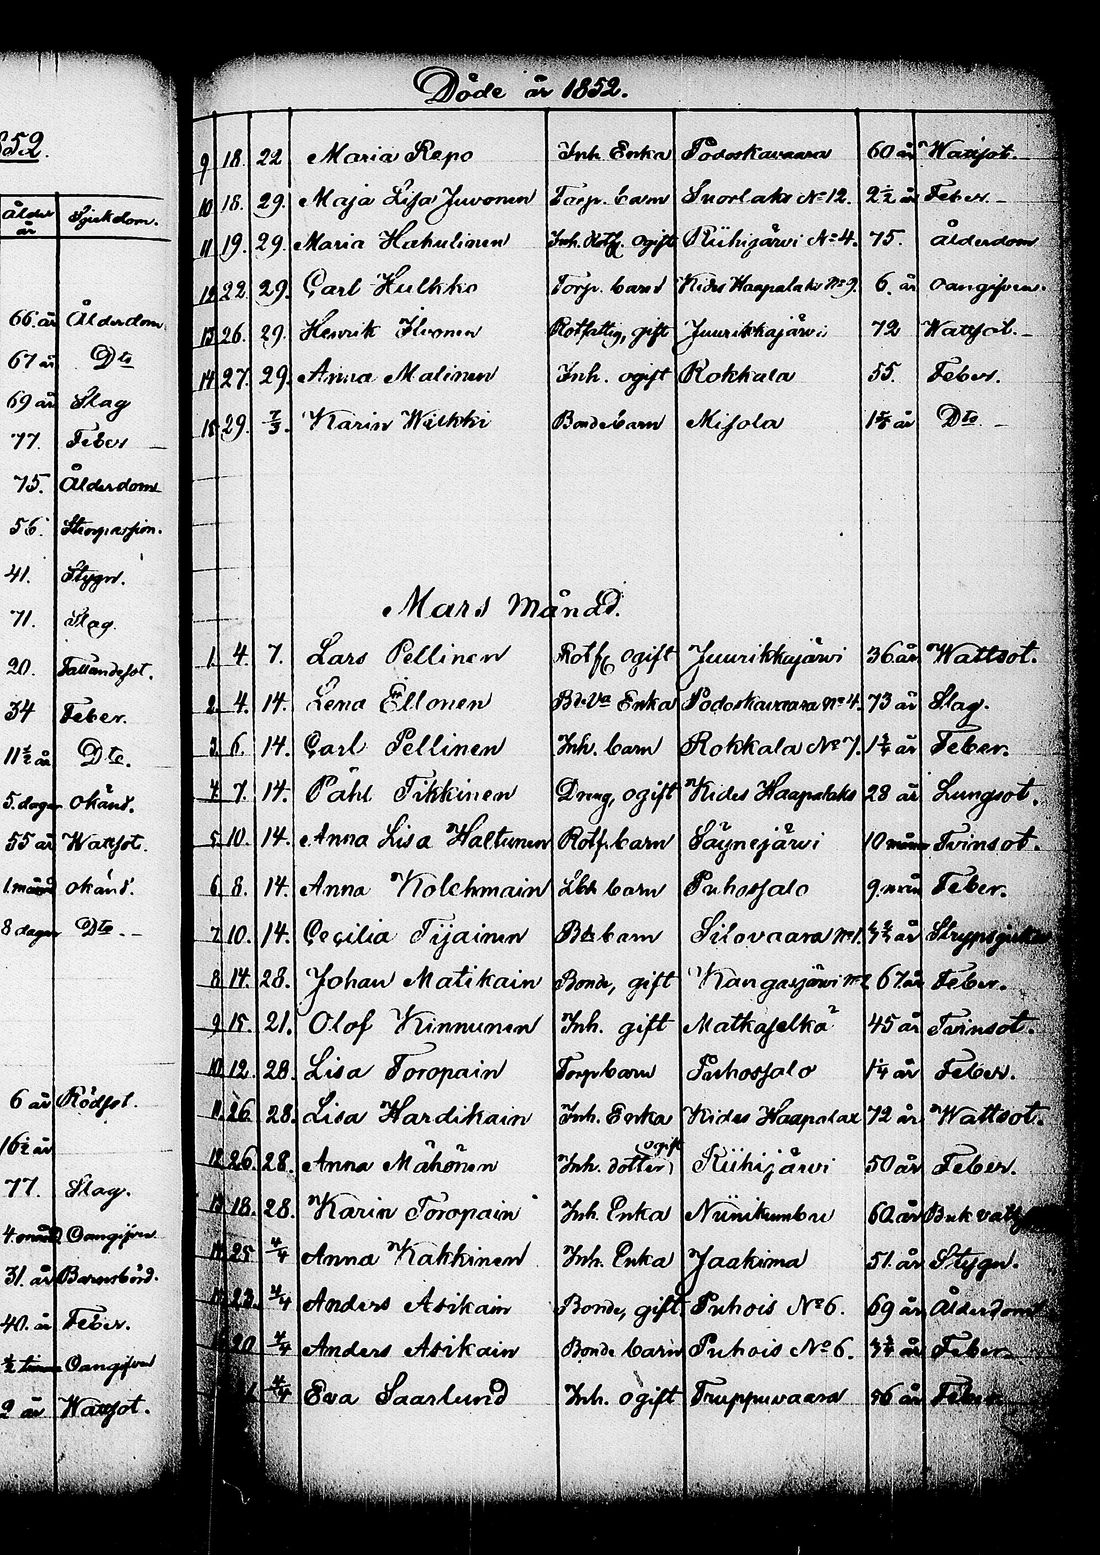 852.
Ålder år Sjukdom.
66. år Ålderdom
67 år Dto
69 år Slag
77. Feber
75. Ålderdom
56.
41. Stygn.
71. Slag.
20. Fallandesot.
34 Feber.
11 1/2 år Dto.
5. dagar okänd.
55 år Wattsot.
1. månad okänd.
8 dagar Dto.
6 år Rödsot.
16 1/2 år
77. Slag.
4. månad Oangifven
31. år Barnsbörd.
40. år Feber.
1/2 timme Oangifven
2 år Wattsot.
Döde år 1852.
9 18. 22 Maria Repo Inh. Enka Podoskavaara 60 år Wattsot.
10 18. 29. Maja Lisa Juvonen Torp. barn Suorlaks No 12. 2 1/2 år Feber.
11 19. 29. Maria Hakulinen Inh. Rotf. ogift Riihijärvi No 4. 75. Ålderdom
12 22. 29. Carl Hulkko Torp. barn Kides Haapalaks No 9. 6. år oangifven.
13 26. 29. Henrik Ikonen Rotfattig, gift Juurikkajärvi 72 Wattsot.
14 27. 29. Anna Malinen Inh. ogift Rokkala 55. Feber.
15 29. 7/3. Karin Wilkki Bonde barn Misola Dto
Mars Månad.
1. 4. 7. Lars Pellinen Rotf. ogift Juurikkajärvi 36 år Wattsot.
2. 4. 14. Lena Ellonen Bde Va Enka Podoskavaara No 4. 73 år Slag.
3. 6. 14. Carl Pellinen Inh. barn Rokkala No 7. Feber.
4. 7. 14. Påhl Tikkinen Dreng, ogift Kides Haapalaks 28 år Lungsot.
5. 10. 14. Anna Lisa Haltunen Rotf. barn Säynejärvi 10 mån Tvinsot.
6. 8. 14. Anna Kolehmain barn Puhossalo 9. mån Feber.
7. 10. 14. Cecilia Tijainen Bde barn Silovaara No 1. Strypsjukan
8 14. 28. Johan Matikain Bonde, gift Kangasjärvi 67 år Feber.
9 15. 21. Olof Kinnunen Inh. gift Matkaselkä 45 år Tvinsot.
10 12. 28. Lisa Toropain Torp barn Puhossalo 1 1/4 år Feber.
11. 26 28. Lisa Hardikain Inh. Enka Kides Haapalax 72 år Wattsot.
12 26. 28. Anna Mähönen Inh. dotter, ogift Riihijärvi 50 år Feber.
13 18. 28. Karin Toropain Inh. Enka Niinikumbu 60 år Buk
14 25 4/4 Anna Kakkinen Inh. Enka Jaakima 51. år Stygn.
15 23. 4/4 Anders Asikain Bonde, gift. Puhois No 6. 69 år Ålderdom
20 4/4 Anders Asikain Bonde barn Puhois No 6. Feber
4/4 Eva Saarlund Inh. ogift Truppuvaara 56 år Feber.